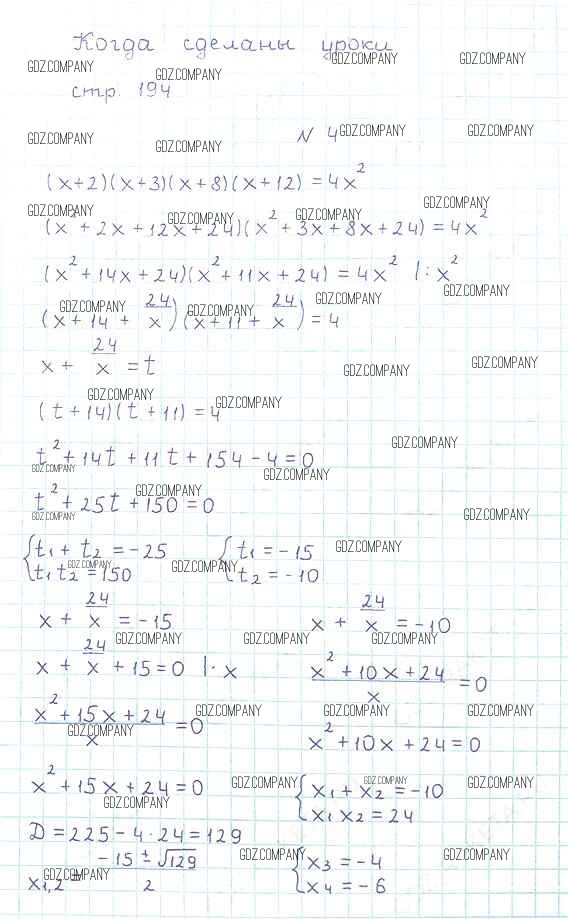 Когда сделаны уроки
стр. 194
N 4
(x+2)(x+3)(x+8)(x+12) = 4x²
(x² + 2x + 12x + 24)(x² + 3x + 8x + 24) = 4x²
(x² + 14x + 24)(x² + 11x + 24) = 4x² |: x²
(x + 14 + 24/x)(x + 11 + 24/x) = 4
x + 24/x = t
(t + 14)(t + 11) = 4
t² + 14t + 11t + 154 - 4 = 0
t² + 25t + 150 = 0
{t₁ + t₂ = -25 {t₁ = -15
{t₁ t₂ = 150 {t₂ = -10
x + 24/x = -15
x + 24/x + 15 = 0 |· x
(x² + 15x + 24)/x = 0
x² + 15x + 24 = 0
D = 225 - 4 · 24 = 129
x₁,₂ = (-15 ± √129)/2
x + 24/x = -10
(x² + 10x + 24)/x = 0
x² + 10x + 24 = 0
{x₁ + x₂ = -10
{x₁ x₂ = 24
{x₃ = -4
{x₄ = -6
GDZ.COMPANY